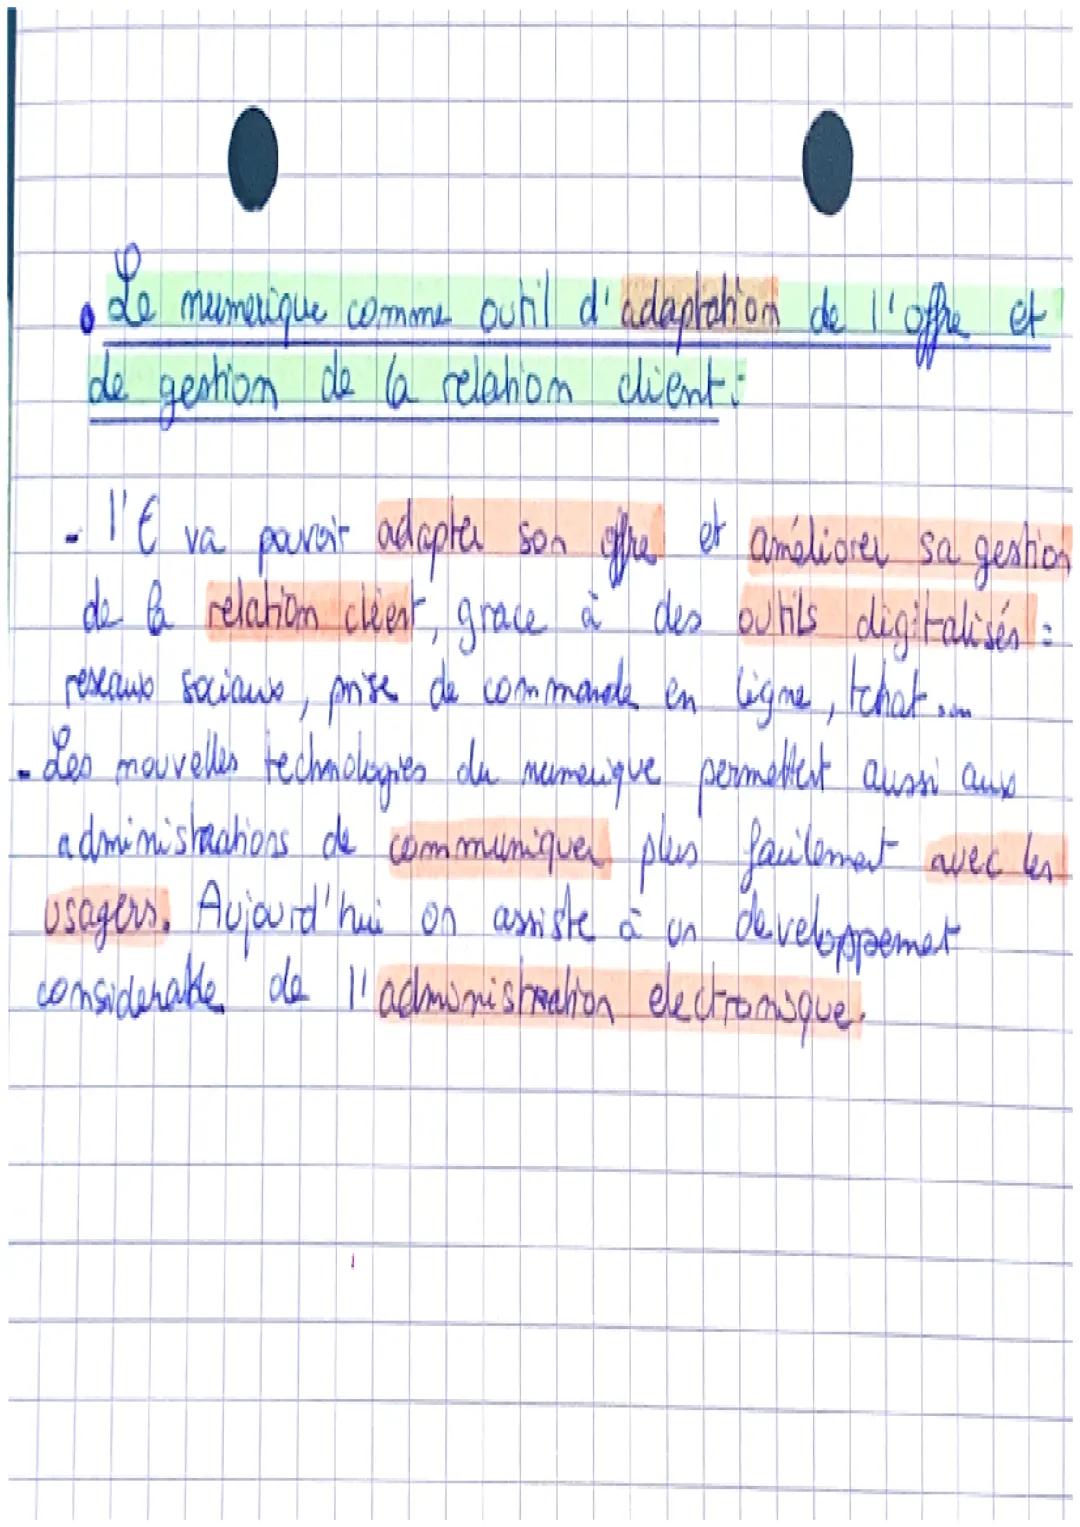 • Le numerique comme outil d'adaptation de l'offre et
de gestion de la relation client :
- l'E va pouvoir adapter son offre et améliorer sa gestion
de la relation client, grace à des outils digitalisés :
reseaux sociaux, prise de commande en ligne, tchat...
- Les nouvelles technologies du numerique permettent aussi aux
administrations de communiquer plus facilement avec les
usagers. Aujourd'hui on assiste à un developpement
considerable de l'administration electronique.